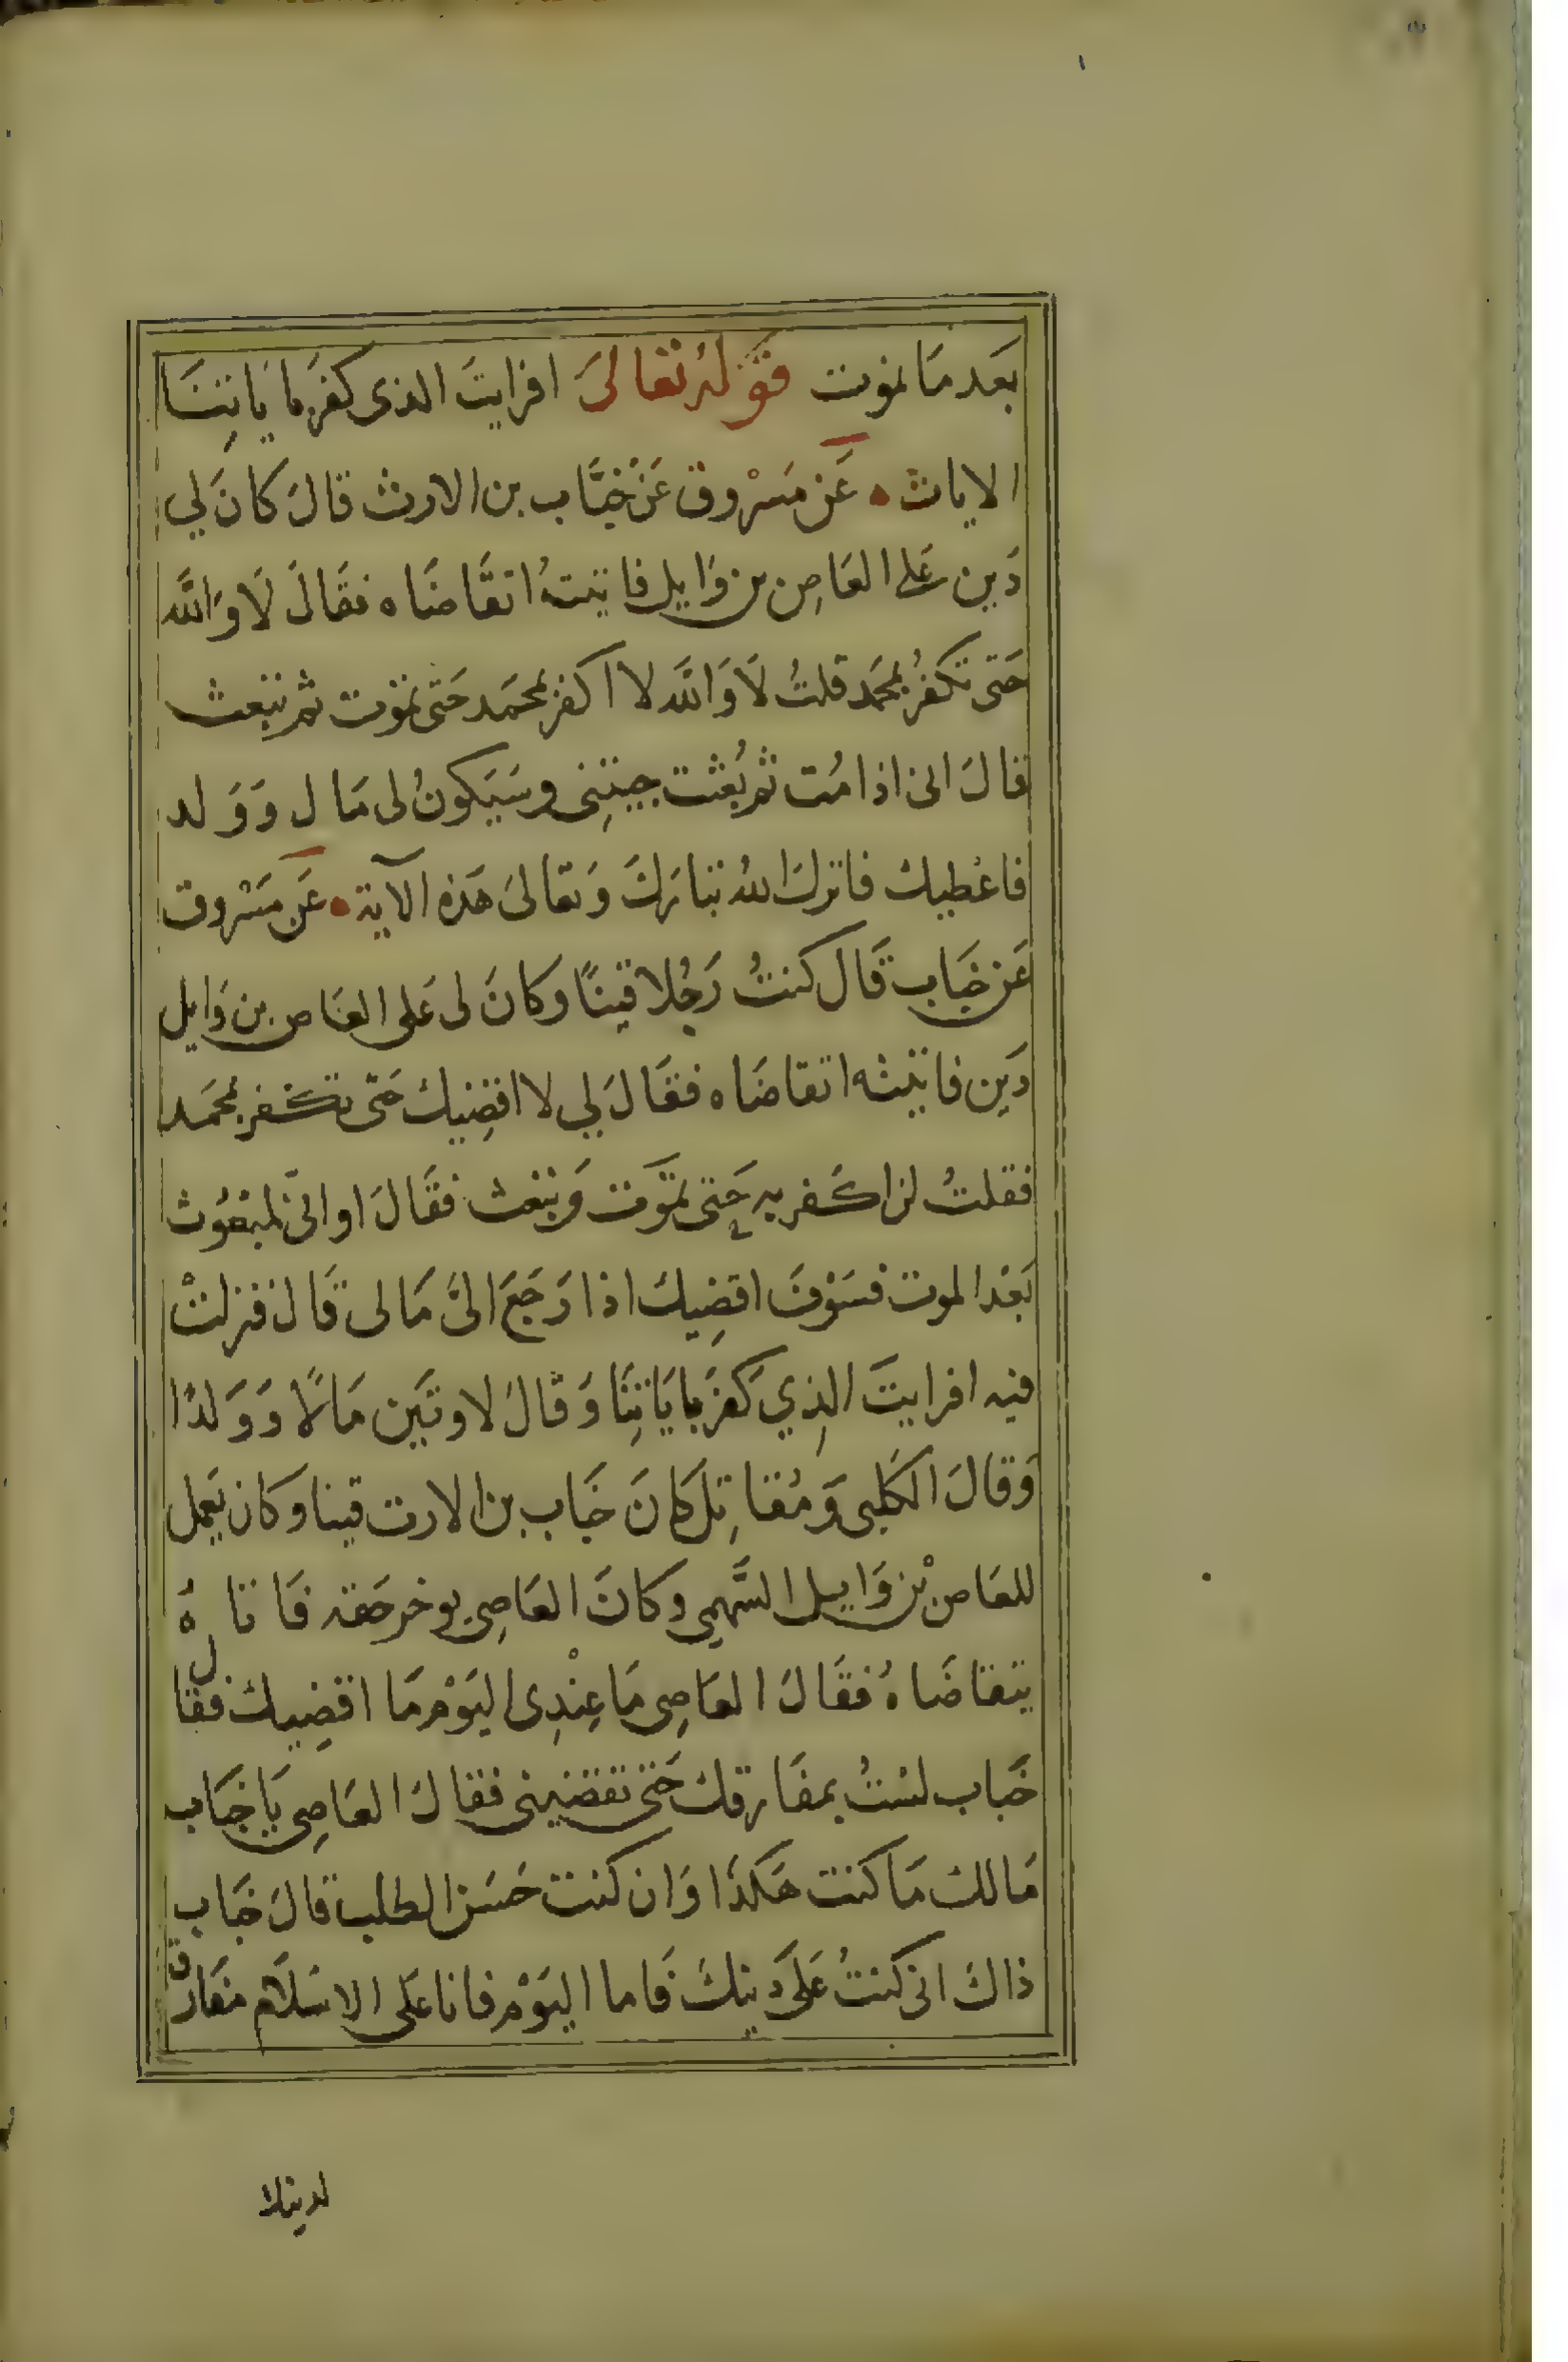 بَعد مَا نموت قوله تعالىَ افرايتَ الذى كفرَ باياتِنَا
الايات ه عَن مَسْروق عَنْ خبَّاب بن الارث قالَ كانَ لي
دَين عَلى العَاصِ بن وَايل فاتيتهُ اتقَاضَاه فقَالَ لَا وَالله
حَتى تكفُر بمحمَد قلتُ لَا وَالله لا اكفر بمحمَد حَتى تموت ثم تبعث
قالَ انى اذا مُت ثم بُعثت جيتنِى وسَيَكونُ لى مَال وَوَلد
فاعْطيك فانزلَ اللهُ تبارَكَ وَتعالىَ هَذه الآية ه عَن مَسْروق
عَن خبَاب قَال كنتُ رَجُلا قينًا وَكانَ لى عَلى العَاص بن وَايل
دَين فاتيته اتقاضَاه فقَالَ لي لا اقضِيك حَتى تكفر بمحمَد
فقلتُ لن اكفر به حَتى تموَت وَتبعث فقَالَ او انىّ لمبعُوث
بَعْد الموت فسَوْفَ اقضِيكَ اذا رَجَعَ الىَّ مَالى قَالَ فنزلتْ
فيه افرايتَ الذِي كَفرَ باياتِنَا وَقالَ لاوتَين مَالًا وَوَلدًا
وَقالَ الكَلبى وَمُقاتِل كانَ خَباب بن الارت قينا وكان يَعمل
للعَاص بْن وَايل السَّهمي وكانَ العَاصِي يوخر حَقه فَاتاهُ
يتقاضَاهُ فقَالَ العَاصِى مَا عِنْدِى اليَوْم مَا اقضِيك فقال
خَباب لسْتُ بمفَارقك حَتى تقضينى فقالَ العَاصِى يَا خبَاب
مَالك مَا كنت هَكَذَا وَان كنت حَسَن الطلب قالَ خبَاب
ذاكَ انى كنتُ عَلىَ دينكَ فَاما اليَوْم فانا عَلى الاسْلَام مفَارق
لدينك